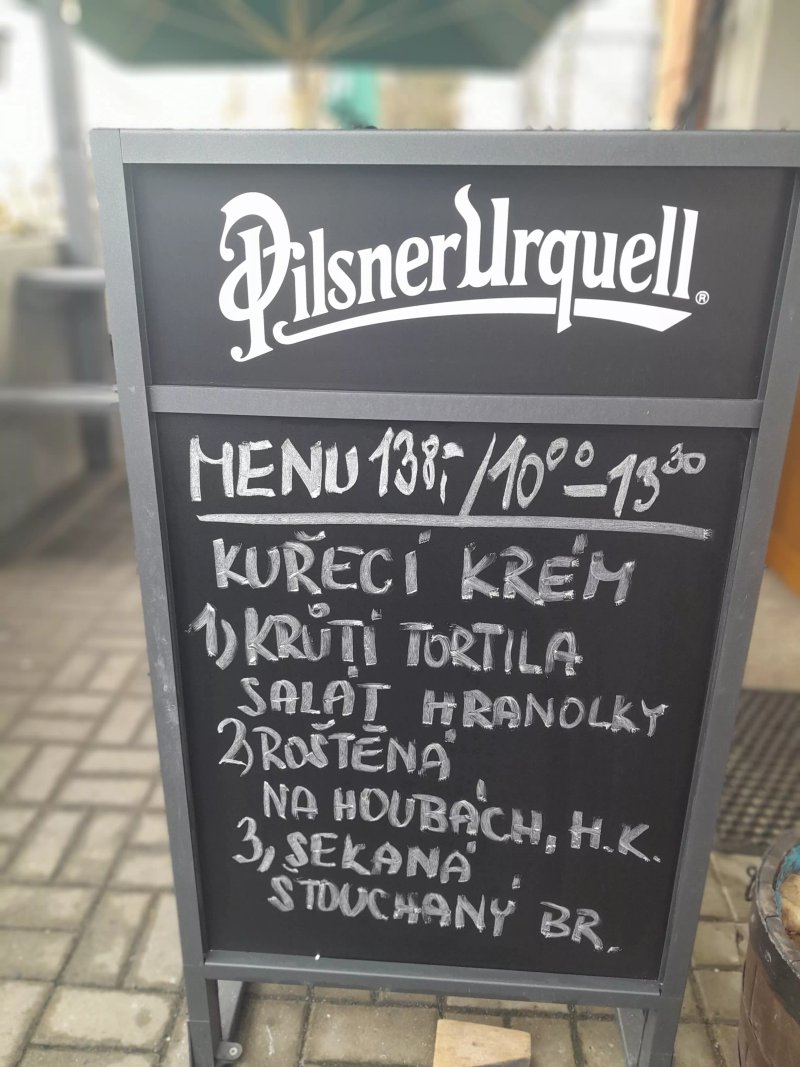 Pilsner Urquell®
MENU 138,- / 10⁰⁰ - 13³⁰
KUŘECÍ KRÉM
1) KRŮTÍ TORTILA
SALÁT HRANOLKY
2) ROŠTĚNÁ
NA HOUBÁCH, H.K.
3, SEKANÁ
ŠTOUCHANÝ BR.